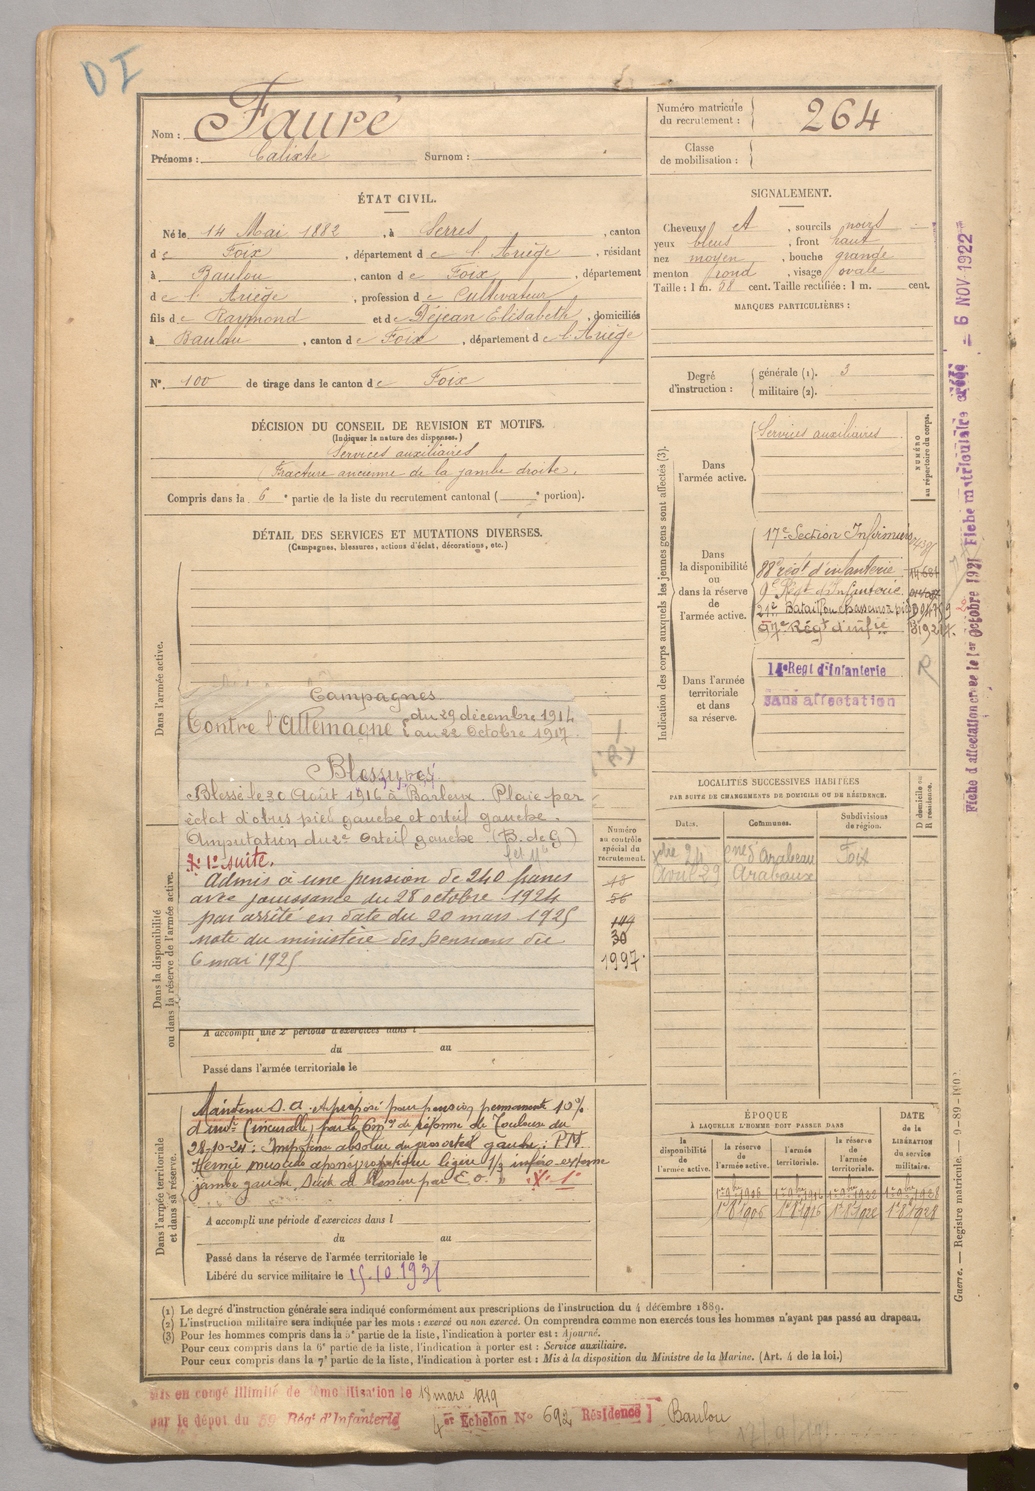 DI
Nom : Fauré
Prénoms : Calixte Surnom :
Numéro matricule du recrutement : 264
Classe de mobilisation :
ÉTAT CIVIL.
Né le 14 Mai 1882, à Serres, canton
de Foix, département de l'Ariège, résidant
à Baulou, canton de Foix, département
de l'Ariège, profession de Cultivateur
fils de Raymond et de Déjean Elisabeth, domiciliés
à Baulou, canton de Foix, département de l'Ariège
N°. 100 de tirage dans le canton de Foix
SIGNALEMENT.
Cheveux et, sourcils noirs
yeux bleus, front haut
nez moyen, bouche grande
menton rond, visage ovale
Taille : 1 m. 58 cent. Taille rectifiée : 1 m. cent.
MARQUES PARTICULIÈRES :
Degré d'instruction : générale (1). 3
militaire (2).
DÉCISION DU CONSEIL DE REVISION ET MOTIFS.
(Indiquer la nature des dispenses.)
Services auxiliaires
Fracture ancienne de la jambe droite.
Compris dans la 6e partie de la liste du recrutement cantonal ( e portion).
DÉTAIL DES SERVICES ET MUTATIONS DIVERSES.
(Campagnes, blessures, actions d'éclat, décorations, etc.)
Dans l'armée active.
Campagnes
Contre l'Allemagne du 29 décembre 1914
au 22 Octobre 1917.
Blessures
Blessé le 30 Août 1916 à Barleux. Plaie par
éclat d'obus pied gauche et orteil gauche.
Amputation du 2e Orteil gauche. (B. de G)
1° suite.
Admis à une pension de 240 francs
avec jouissance du 28 octobre 1924
par arrêté en date du 20 mars 1925
note du ministère des pensions du
6 mai 1925
Dans la disponibilité ou dans la réserve de l'armée active.
A accompli une 2e période d'exercices dans l
du au
Passé dans l'armée territoriale le
Numéro au contrôle spécial du recrutement.
30
1997
Dans l'armée territoriale et dans sa réserve.
Maintenu S.a. et proposé pour pension permanente 10%
(incurable) par la Con de réforme de Toulouse du
28-10-24 : Impotence absolue du gros orteil gauche. PM
Hernie musculo aponévrotique légère 1/3 inféro-externe
jambe gauche
A accompli une période d'exercices dans l
du au
Passé dans la réserve de l'armée territoriale le
Libéré du service militaire le 15.10.1931
Indication des corps auxquels les jeunes gens sont affectés (3).
NUMÉRO au répertoire du corps.
Dans l'armée active.
Services auxiliaires
Dans la disponibilité ou dans la réserve de l'armée active.
17e Section Infirmiers
88e régt d'infanterie
9e Régt d'Infanterie
21e Bataillon chasseurs à pied
57e Régt d'infie
Dans l'armée territoriale et dans sa réserve.
14e Regt d'Infanterie
sans affectation
R
LOCALITÉS SUCCESSIVES HABITÉES
PAR SUITE DE CHANGEMENTS DE DOMICILE OU DE RÉSIDENCE.
Dates. Communes. Subdivisions de région. D domicile ou R résidence.
Arabaux Foix
Avril 29 Arabaux
ÉPOQUE
À LAQUELLE L'HOMME DOIT PASSER DANS
la disponibilité de l'armée active. la réserve de l'armée active. l'armée territoriale. la réserve de l'armée territoriale. DATE de la LIBÉRATION du service militaire.
Fiche d'affectation créée le 1er Octobre 1921 Fiche matriculaire créée — 6 NOV. 1922
Guerre. — Registre matricule.
(1) Le degré d'instruction générale sera indiqué conformément aux prescriptions de l'instruction du 4 décembre 1889.
(2) L'instruction militaire sera indiquée par les mots : exercé ou non exercé. On comprendra comme non exercés tous les hommes n'ayant pas passé au drapeau.
(3) Pour les hommes compris dans la 5e partie de la liste, l'indication à porter est : Ajourné.
Pour ceux compris dans la 6e partie de la liste, l'indication à porter est : Service auxiliaire.
Pour ceux compris dans la 7e partie de la liste, l'indication à porter est : Mis à la disposition du Ministre de la Marine. (Art. 4 de la loi.)
Mis en congé illimité de démobilisation le 18 mars 1919
par le dépôt du 59 Régt d'Infanterie 4er Echelon N° 692 Résidence Baulou